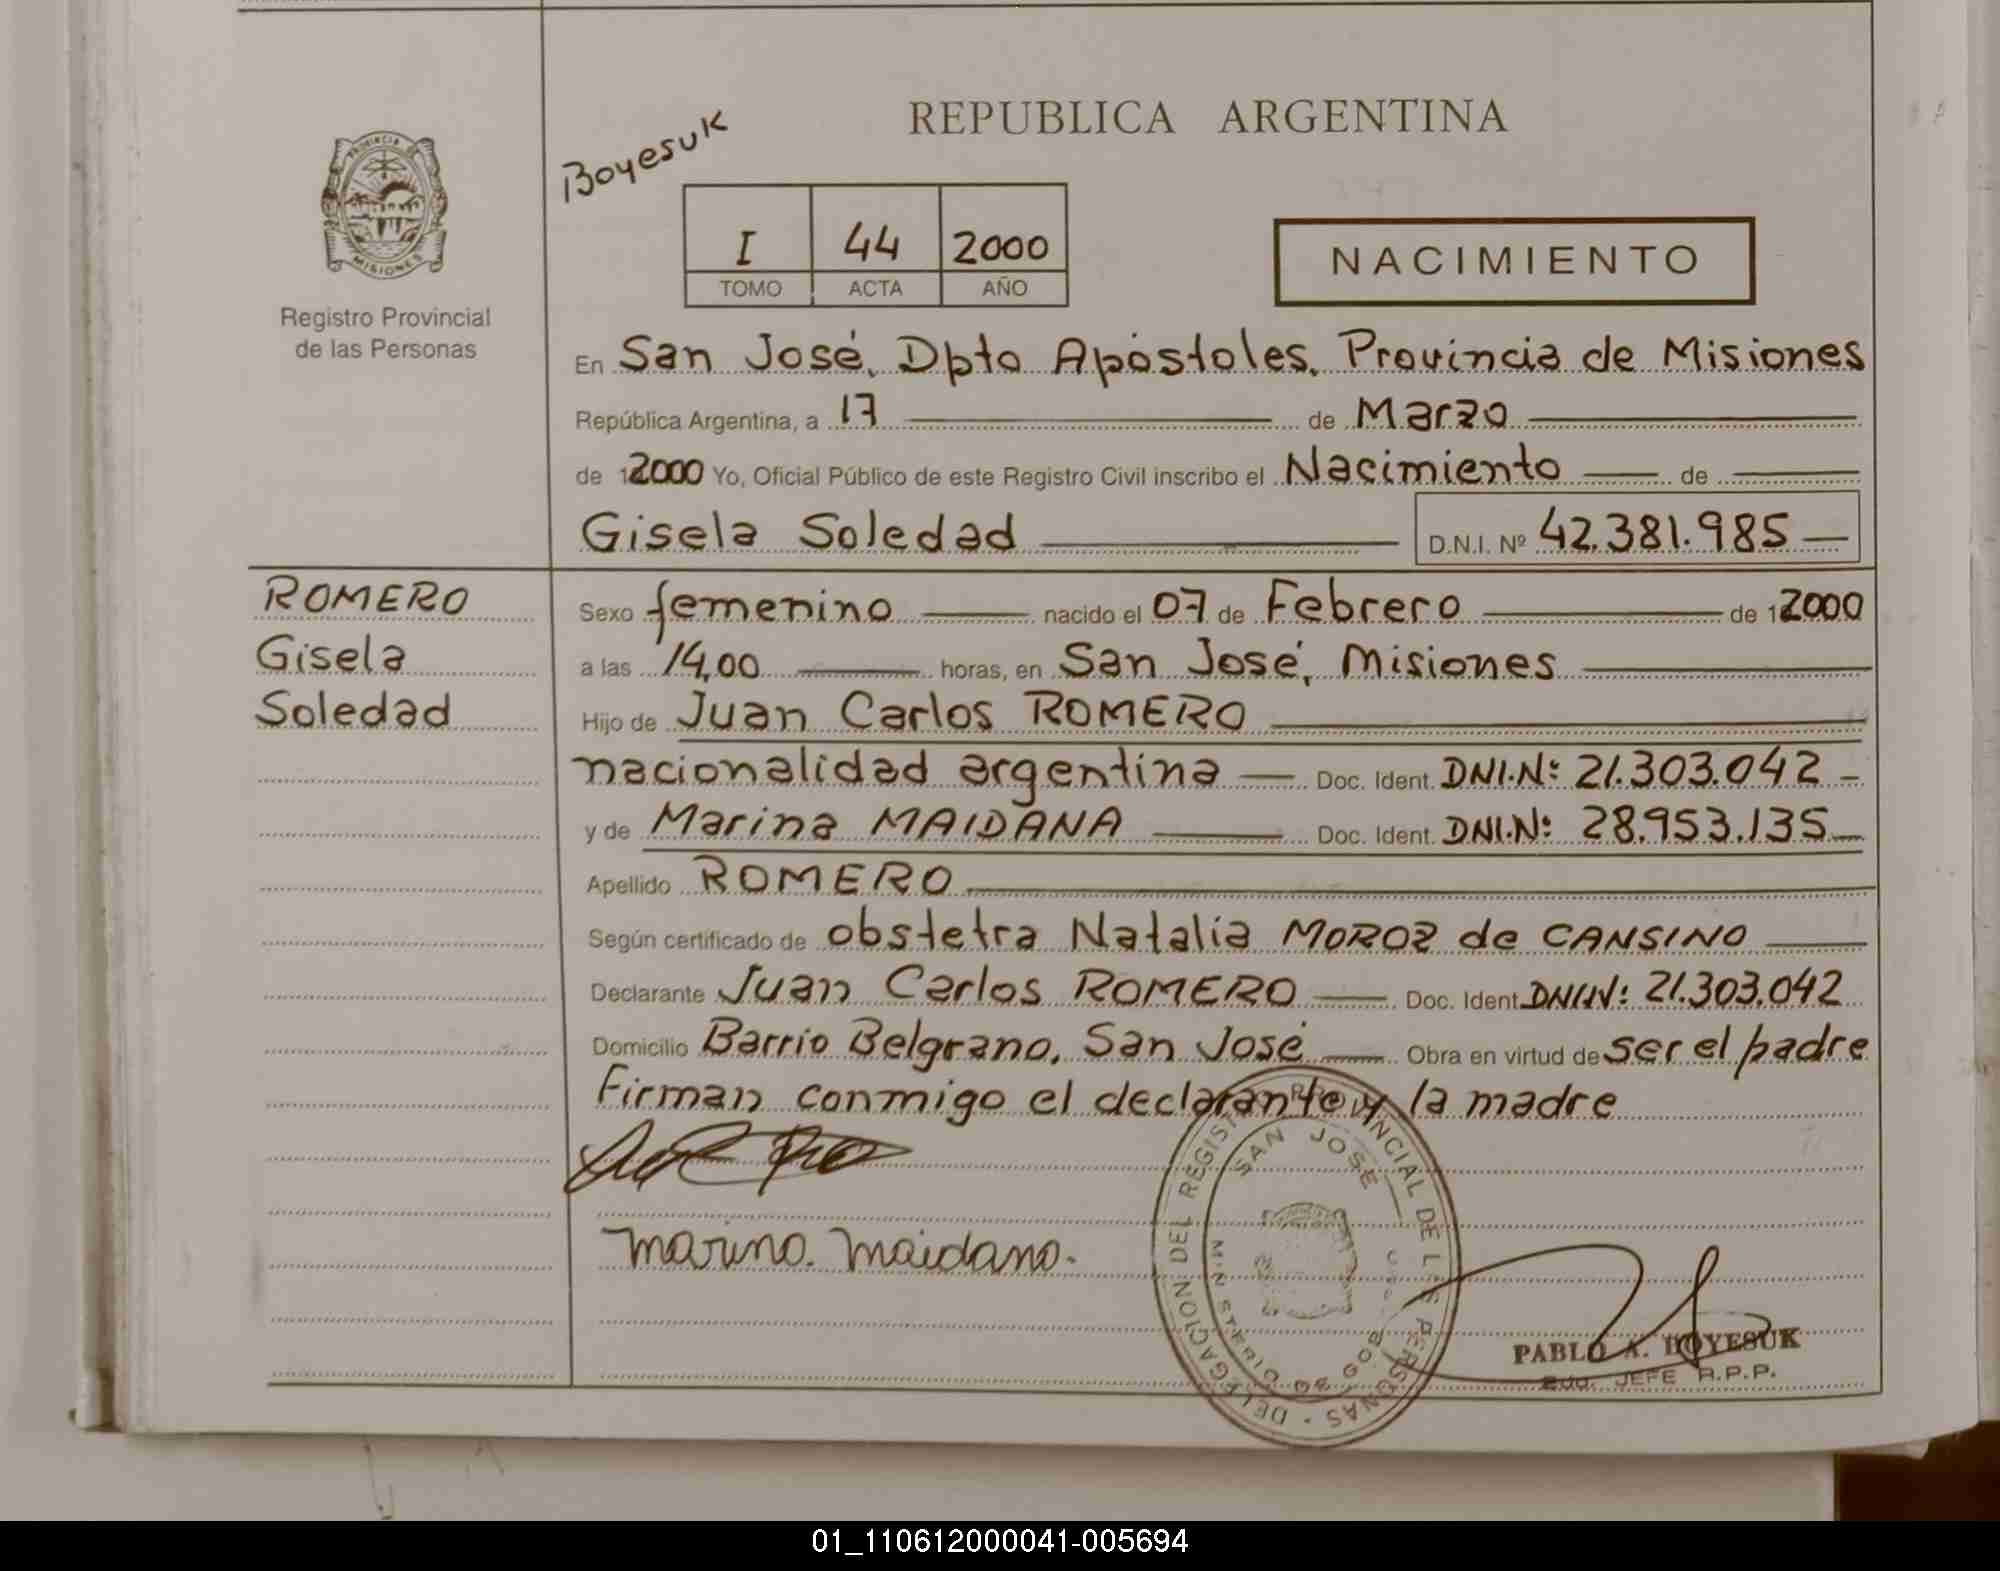 REPUBLICA ARGENTINA
Boyesuk
PROVINCIA DE
MISIONES
Registro Provincial
de las Personas
I 44 2000
TOMO ACTA AÑO
NACIMIENTO
En San José, Dpto Apóstoles, Provincia de Misiones
República Argentina, a 17 de Marzo
de 12000 Yo, Oficial Público de este Registro Civil inscribo el Nacimiento de
Gisela Soledad D.N.I. Nº 42.381.985
ROMERO
Gisela
Soledad
Sexo femenino nacido el 07 de Febrero de 12000
a las 14,00 horas, en San José, Misiones
Hijo de Juan Carlos ROMERO
nacionalidad argentina Doc. Ident. DNI.Nº: 21.303.042
y de Marina MAIDANA Doc. Ident. DNI.Nº: 28.953.135
Apellido ROMERO
Según certificado de obstetra Natalia MOROZ de CANSINO
Declarante Juan Carlos ROMERO Doc. Ident. DNI.Nº: 21.303.042
Domicilio Barrio Belgrano, San José Obra en virtud de ser el padre
Firman conmigo el declarante y la madre
Marina. Maidana.
DELEGACION DEL REGISTRO PROVINCIAL DE LAS PERSONAS
SAN JOSE
MINISTERIO DE GOB
PABLO A. BOYESUK
JEFE R.P.P.
01_110612000041-005694